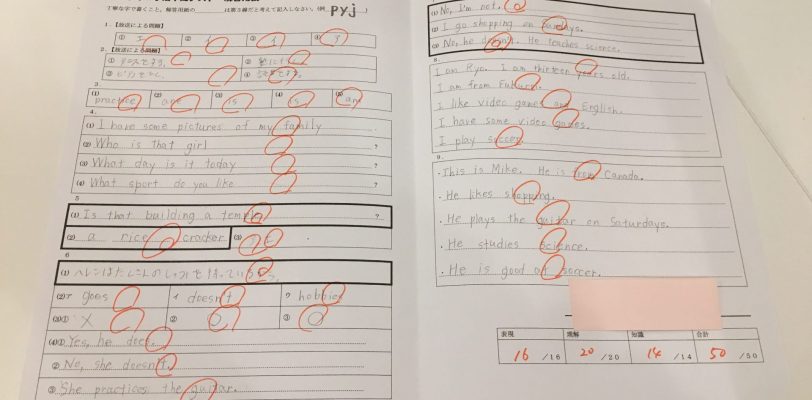 丁寧な字で書くこと。解答用紙の は第3線だと考えて記入しなさい。(例 pyj )
1.【放送による問題】
① ② イ ③ イ ④ ア
2.【放送による問題】
①
②
③
④
3.
(1) practice (2) are (3) is (4) is (5) an
4.
(1) I have some pictures of my family .
(2) Who is that girl ?
(3) What day is it today ?
(4) What sport do you like ?
5
(1) Is that building a temple ?
(2) a rice cracker (3)
6
(1)
(2)ア goes イ doesn't ウ hobbies
(3)① X ② ○ ③ ○
(4)① Yes, he does.
② No, she doesn't.
③ She practices the guitar.
(1) No, I'm not.
(2) I go shopping on Sundays.
(3) No, he doesn't. He teaches science.
8
I am Ryo. I am thirteen years old.
I am from
I like video games and English.
I have some video games.
I play soccer.
9.
・This is Mike. He is from Canada.
・He likes shopping.
・He plays the guitar on Saturdays.
・He studies science.
・He is good at soccer.
表現 理解 知識 合計
16 /16 20 /20 14 /14 50 /50